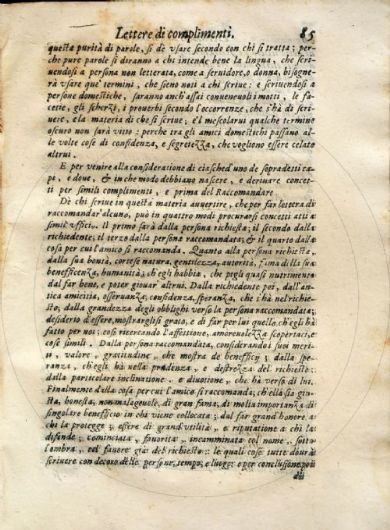 Lettere di complimenti. 85
questa purità di parole, si dè vsare secondo con chi si tratta; per-
che pure parole si diranno a chi intende bene la lingua, che scri-
uendosi a persona non letterata, come a seruidore, o donna, bisogne
rà vsare que' termini, che sieno noti a chi scriue: e scriuendosi a
persone domestiche, saranno anch'assai conueneuoli i motti, le fa-
cetie, gli scherzi, i prouerbi secondo l'occorrenze, che s'hà di scri-
uere, e la materia di che si scriue; e'l mescolarui qualche termino
oscuro non sarà vitio: perche tra gli amici domestichi passano al-
le volte cose di confidenza, e segretezza, che vogliono essere celate
altrui.
E per venire alla consideratione di ciasched'uno de sopradetti ca-
pi, e doue, & in che modo debbiano nascere, e deriuare concet-
ti per simili complimenti, e prima del Raccomandare.
Dè chi scriue in questa materia auuertire, che per far lettera di
raccomandar alcuno, può in quattro modi procurarsi concetti atti a
simil'vfficio. Il primo sarà dalla persona richiesta; il secondo dalla
richiedente; il terzo dalla persona raccomandata, & il quarto dalla
cosa per cui l'amico si raccomanda. Quanto alla persona richiesta,
dalla sua bontà, cortese natura, gentilezza, autorità, fama della sua
beneficenza, humanità, ch'egli habbia, che pigli quasi nutrimento
dal far bene, e poter giouar altrui. Dalla richiedente poi, dall'an-
tica amicitia, osseruanza, confidenza, speranza, che s'hà nel richie-
sto, dalla grandezza degli obblighi verso la persona raccomandata;
desiderio d'essere, mostrargliсi grato, e di far per lui quello, ch'egli hà
fatto per noi: così ricercando l'affettione, amoreuolezza scopertaci, e
cose simili. Dalla persona raccomandata, considerando i suoi meri-
ti, valore, gratitudine, che mostra de beneficij, dalla spe-
ranza, ch'egli hà nella prudenza, e destrezza del richiesto:
dalla particolare inclinatione, e diuotione, che hà verso di lui.
Finalmente dalla cosa per cui l'amico si raccomanda, ch'ella sia giu-
sta, honesta, non malageuole, di gran fama, di molta importanza, di
singolare beneficio in chi viene collocata; dal far grand'honore a
chi la protegge, essere di grand'vtilità, e riputatione a chi la
difende; cominciata, fauorita, incamminata col nome, sotto
l'ombra, nel fauore già del richiesto: le quali cose tutte dourà
scriuere con decoro delle persone, tempo, e luogo: e per conclusione, poi